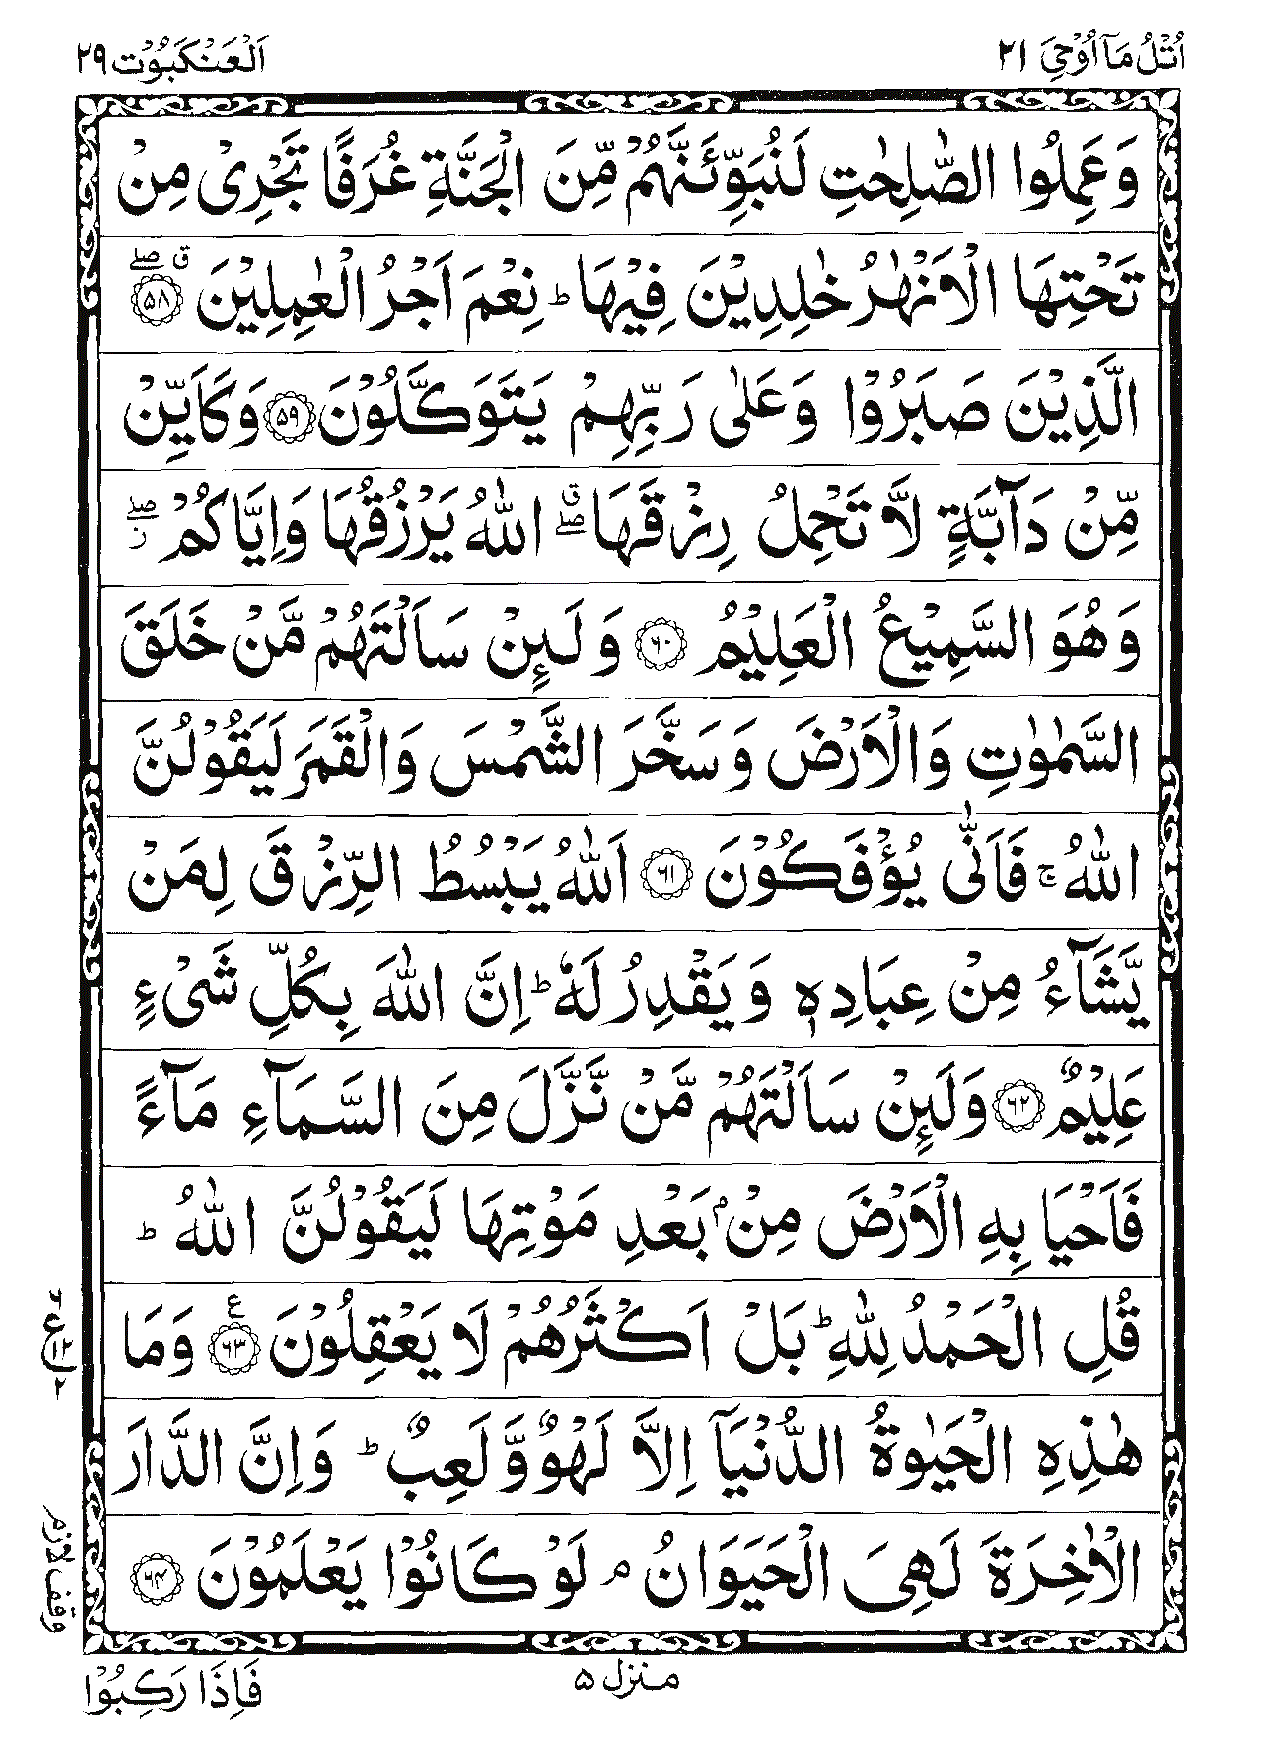 اُتْلُ مَآ اُوْحِيَ ٢١
اَلْعَنْكَبُوْت ٢٩
وَعَمِلُوا الصّٰلِحٰتِ لَنُبَوِّئَنَّهُمْ مِّنَ الْجَنَّةِ غُرَفًا تَجْرِىْ مِنْ
تَحْتِهَا الْاَنْهٰرُ خٰلِدِيْنَ فِيْهَا ؕ نِعْمَ اَجْرُ الْعٰمِلِيْنَ ۖۗ ﴿۵۸﴾
الَّذِيْنَ صَبَرُوْا وَعَلٰى رَبِّهِمْ يَتَوَكَّلُوْنَ ﴿۵۹﴾ وَكَاَيِّنْ
مِّنْ دَآبَّةٍ لَّا تَحْمِلُ رِزْقَهَا ۖۗ اَللّٰهُ يَرْزُقُهَا وَاِيَّاكُمْ ۖز
وَهُوَ السَّمِيْعُ الْعَلِيْمُ ﴿۶۰﴾ وَلَـئِنْ سَاَلْتَهُمْ مَّنْ خَلَقَ
السَّمٰوٰتِ وَالْاَرْضَ وَسَخَّرَ الشَّمْسَ وَالْقَمَرَ لَيَقُوْلُنَّ
اللّٰهُ ۚ فَاَنّٰى يُؤْفَكُوْنَ ﴿۶۱﴾ اَللّٰهُ يَبْسُطُ الرِّزْقَ لِمَنْ
يَّشَآءُ مِنْ عِبَادِهٖ وَيَقْدِرُ لَهٗ ؕ اِنَّ اللّٰهَ بِكُلِّ شَىْءٍ
عَلِيْمٌ ﴿۶۲﴾ وَلَئِنْ سَاَلْتَهُمْ مَّنْ نَّزَّلَ مِنَ السَّمَآءِ مَآءً
فَاَحْيَا بِهِ الْاَرْضَ مِنْۢ بَعْدِ مَوْتِهَا لَيَقُوْلُنَّ اللّٰهُ ؕ
قُلِ الْحَمْدُ لِلّٰهِ ؕ بَلْ اَكْثَرُهُمْ لَا يَعْقِلُوْنَ ﴿۶۳﴾ ع وَمَا
هٰذِهِ الْحَيٰوةُ الدُّنْيَآ اِلَّا لَهْوٌ وَّلَعِبٌ ؕ وَاِنَّ الدَّارَ
الْاٰخِرَةَ لَهِىَ الْحَيَوَانُ ۘ لَوْ كَانُوْا يَعْلَمُوْنَ ﴿۶۴﴾
٦
ع
١٢
٢
وقف لازم
منزل ۵
فَاِذَا رَكِبُوْا